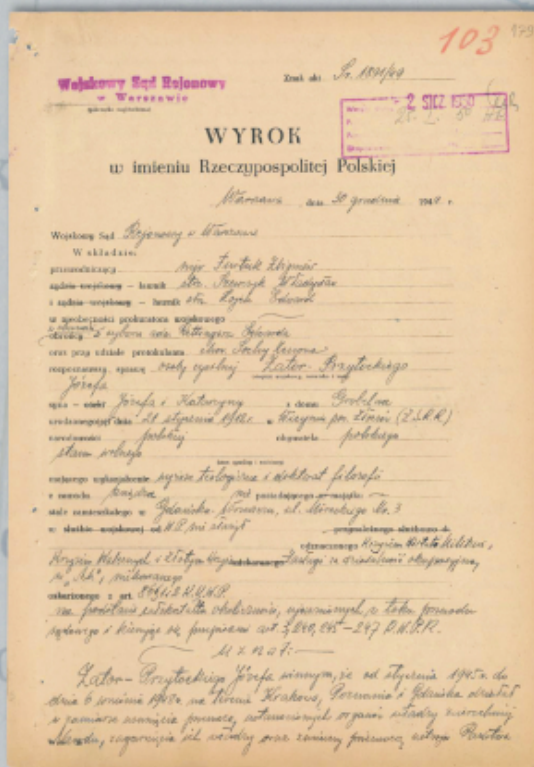 103
179
Wojskowy Sąd Rejonowy
w Warszawie
Znak akt. Sr. 1841/49
2 STCZ. 1950
WYROK
w imieniu Rzeczypospolitej Polskiej
Warszawa dnia 30 grudnia 194 r.
Wojskowy Sąd Rejonowy w Warszawie
W składzie:
przewodniczący mjr Furtak Zbigniew
sędzia wojskowy – ławnik strz. Szewczyk Władysław
i sędzia wojskowy – ławnik Edward
w nieobecności prokuratora wojskowego
obrońcy z wyboru
oraz przy udziale protokolanta
rozpoznawszy sprawę osoby cywilnej Zator-Przytockiego
Józefa
syna – córki Józefa i Katarzyny z domu
urodzonego(ej) dnia 21 stycznia 1912 r. w pow. (Z.S.R.R)
narodowości polskiej obywatela polskiego
stanu wolnego
wyższe teologiczne i doktorat filozofii
z zawodu księdza nie posiadającego majątku
stale zamieszkałego w Gdańsku Wrzeszczu, ul. Nr. 3
w służbie wojskowej od W.P. nie służył
odznaczonego Krzyżem Virtuti Militari,
Krzyżem Walecznych i Złotym Krzyżem Zasługi za działalność okupacyjną
w "AK", niekaranego
oskarżonego z art. 86 § 1 i 2 K.K.W.P.
na podstawie całokształtu okoliczności, ujawnionych w toku przewodu
sądowego i kierując się przepisami art. 3, 240, 245 – 247 K.W.P.K.
uznał:
Zator-Przytockiego Józefa winnym, że od stycznia 1945 r. do
dnia 6 września 1948 r. na terenie Krakowa, Poznania i Gdańska działał
w zamiarze usunięcia przemocą, ustanowionych organów władzy zwierzchniej
Narodu, zagarnięcia ich władzy oraz zmiany przemocą ustroju Państwa